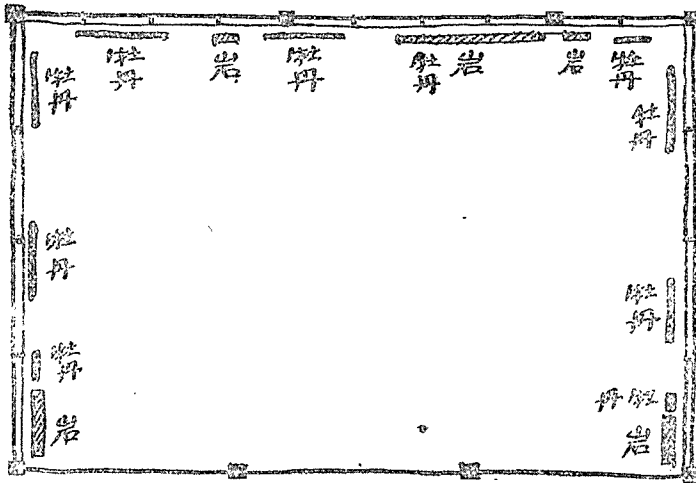 牡丹
岩
牡丹
牡丹
岩
岩
牡丹
牡丹
牡丹
牡丹
牡丹
牡丹
岩
牡丹
牡丹
岩